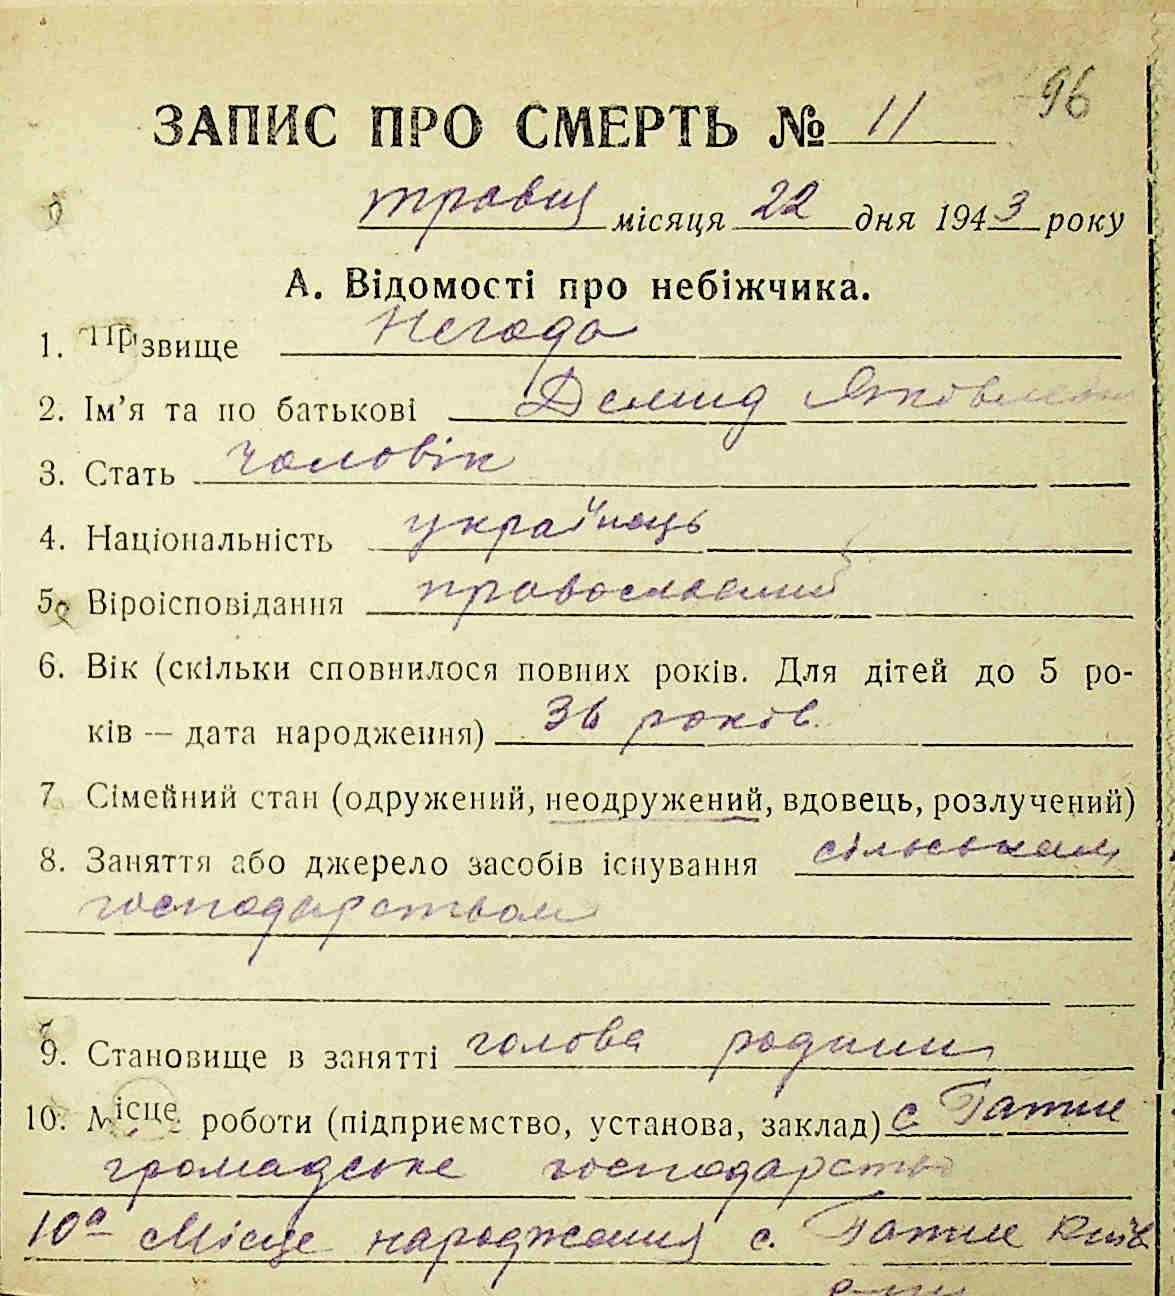 96
ЗАПИС ПРО СМЕРТЬ № 11
травня місяця 22 дня 1943 року
А. Відомості про небіжчика.
1. Прізвище Негода
2. Ім'я та по батькові Демид Якович
3. Стать чоловік
4. Національність українець
5. Віроісповідання православний
6. Вік (скільки сповнилося повних років. Для дітей до 5 ро-
ків — дата народження) 36 років
7. Сімейний стан (одружений, неодружений, вдовець, розлучений)
8. Заняття або джерело засобів існування сільським
господарством
9. Становище в занятті голова родини
10. Місце роботи (підприємство, установа, заклад) с. Гатне
громадське господарство
10а Місце народження с. Гатне Київ